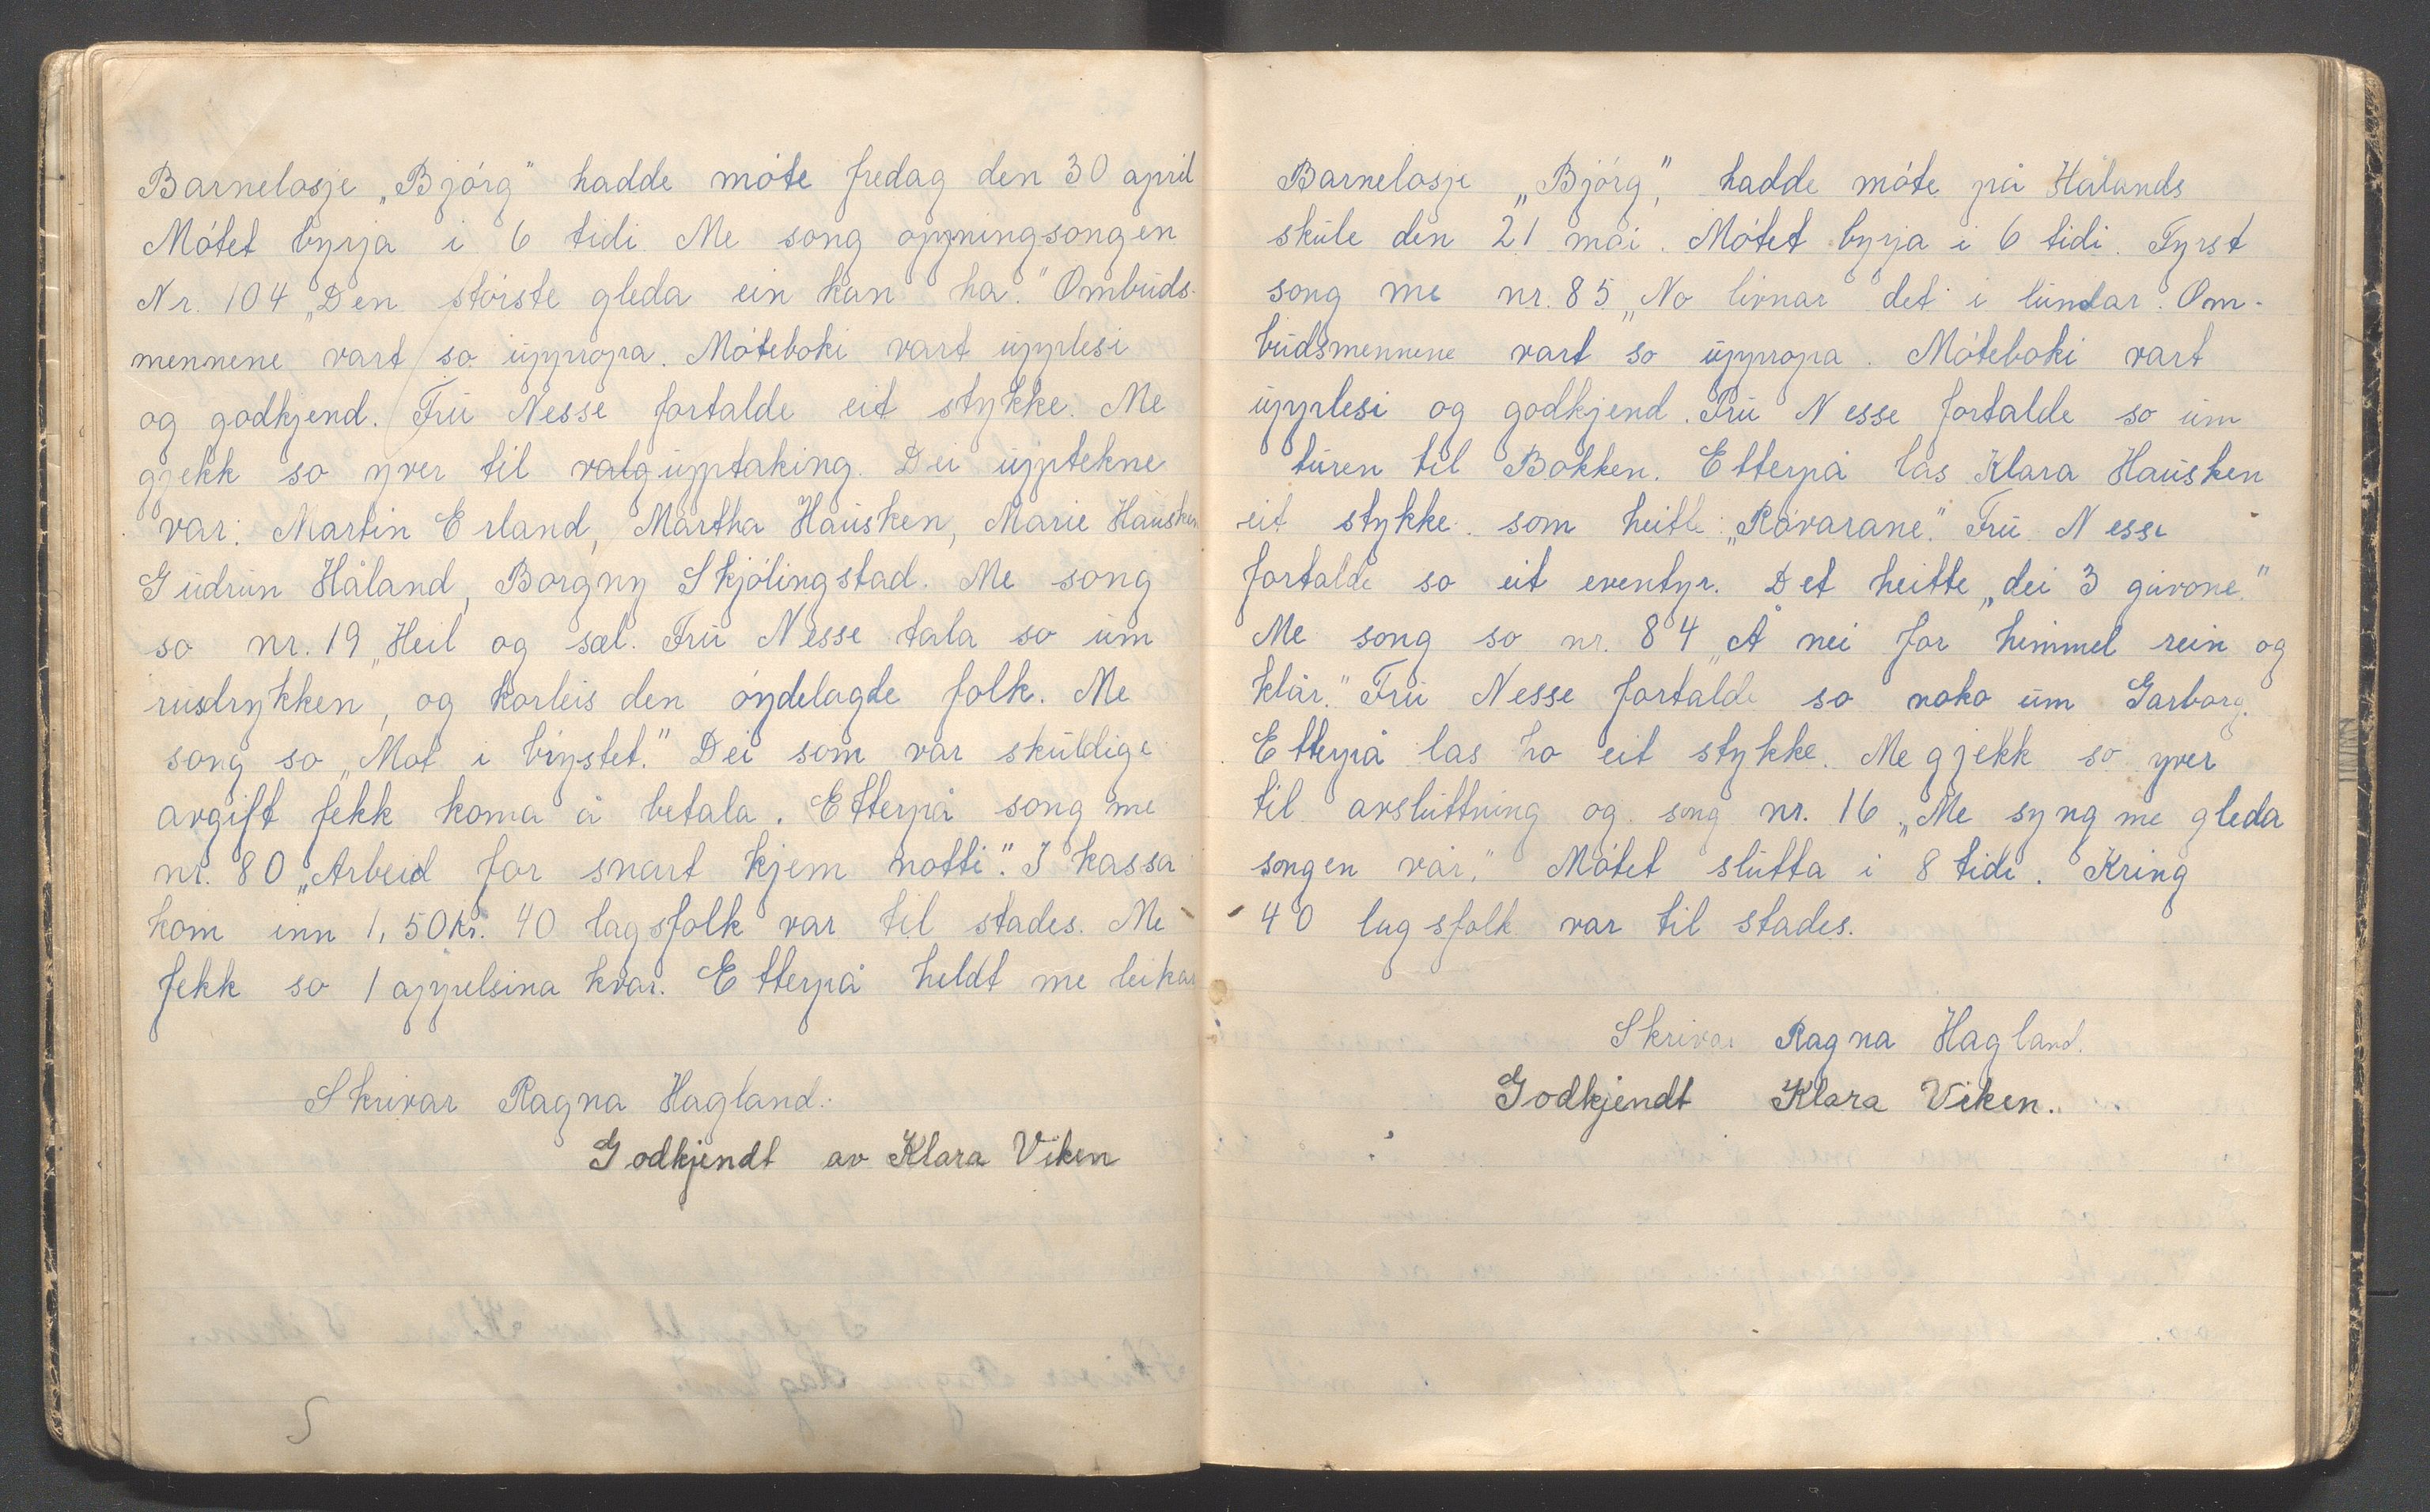 Barnelosje „Bjórg" hadde móte fredag den 30 april
Mótet byrja i 6 tidi. Me song opningsongen
Nr. 104 „Den stórste gleda ein kan ha." Ombuds-
mennene vart so uppropa. Móteboki vart upplesi
og godkjend. Fru Nesse fortalde eit stykke. Me
gjekk so yver til valg upptaking. Dei upptekne
var: Martin Erland, Martha Hausken, Marie Hausken
Gudrun Håland, Borgny Skjólingstad. Me song
so nr. 19 „Heil og sæl. Fru Nesse tala so um
rusdrykken, og korleis den óydelagde folk. Me
song so „Mot i brystet." Dei som var skuldige
avgift fekk koma å betala. Etterpå song me
nr. 80 „Arbeid for snart kjem notti." I kassa
kom inn 1,50 kr. 40 lagsfolk var til stades. Me
fekk so 1 appelsina kvar. Etterpå heldt me leikar
Skrivar Ragna Hagland.
Godkjendt av Klara Viken
Barnelosje „Bjórg," hadde móte på Hålands
skule den 21 mai. Mótet byrja i 6 tidi. Fyrst
song me nr. 85 „No livnar det i lundar. Om-
budsmennene vart so uppropa. Móteboki vart
upplesi og godkjend. Fru Nesse fortalde so um
turen til Bokken. Etterpå las Klara Hausken
eit stykke som heitte: „Róvarane." Fru Nesse
fortalde so eit eventyr. Det heitte „dei 3 gåvone."
Me song so nr. 84 „Å nei for himmel rein og
klår." Fru Nesse fortalde so noko um Garborg.
Etterpå las ho eit stykke. Me gjekk so yver
til avsluttning og song nr. 16 „Me syng me gleda
songen vår." Mótet slutta i 8 tidi. Kring
40 lagsfolk var til stades.
Skrivar Ragna Hagland.
Godkjendt Klara Viken.